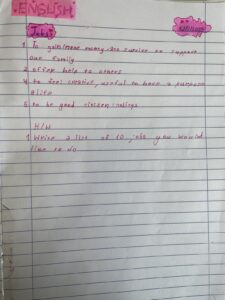 ENGLISH
Jobs
1 To gain/more money and survive or support
our family
2 offer help to others
4 to feel creative, useful to have a purpose
in life
5 to be good citizen
H/W
1 Write a list of 10 jobs you would
like to do